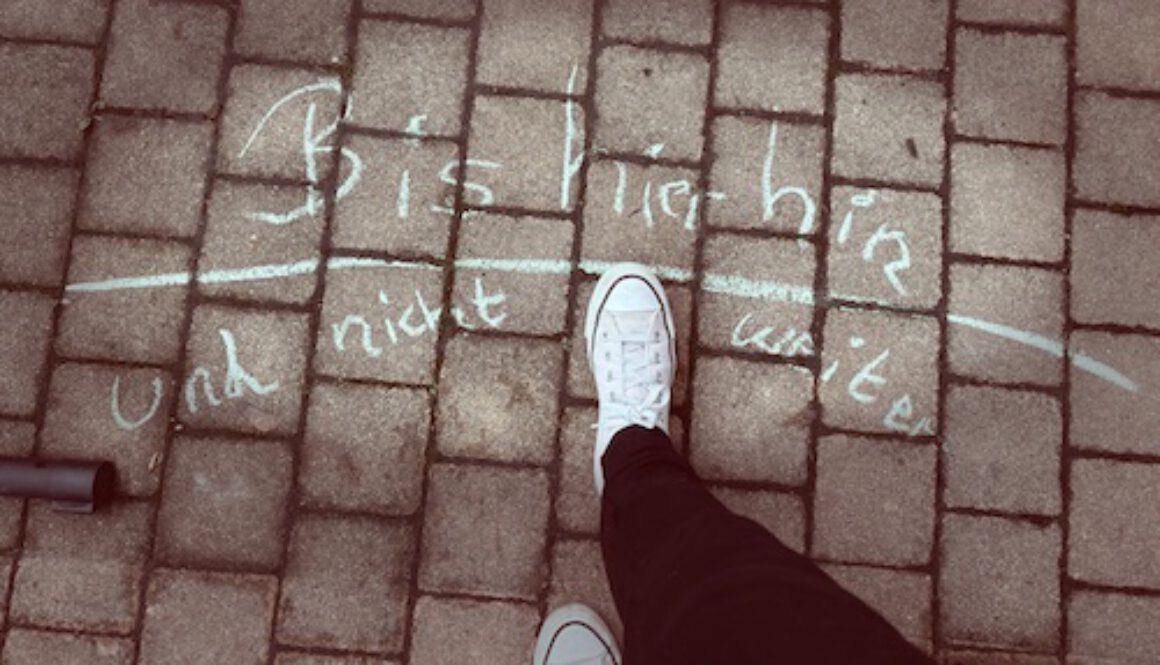 Bis hierhin
und nicht weiter